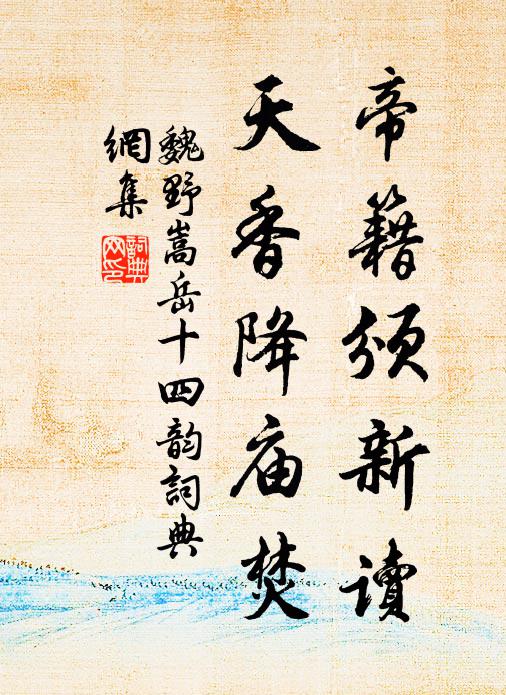 帝籍须新读
天香降庙焚
魏野嵩岳十四韵詞典
網集
詞典
网印